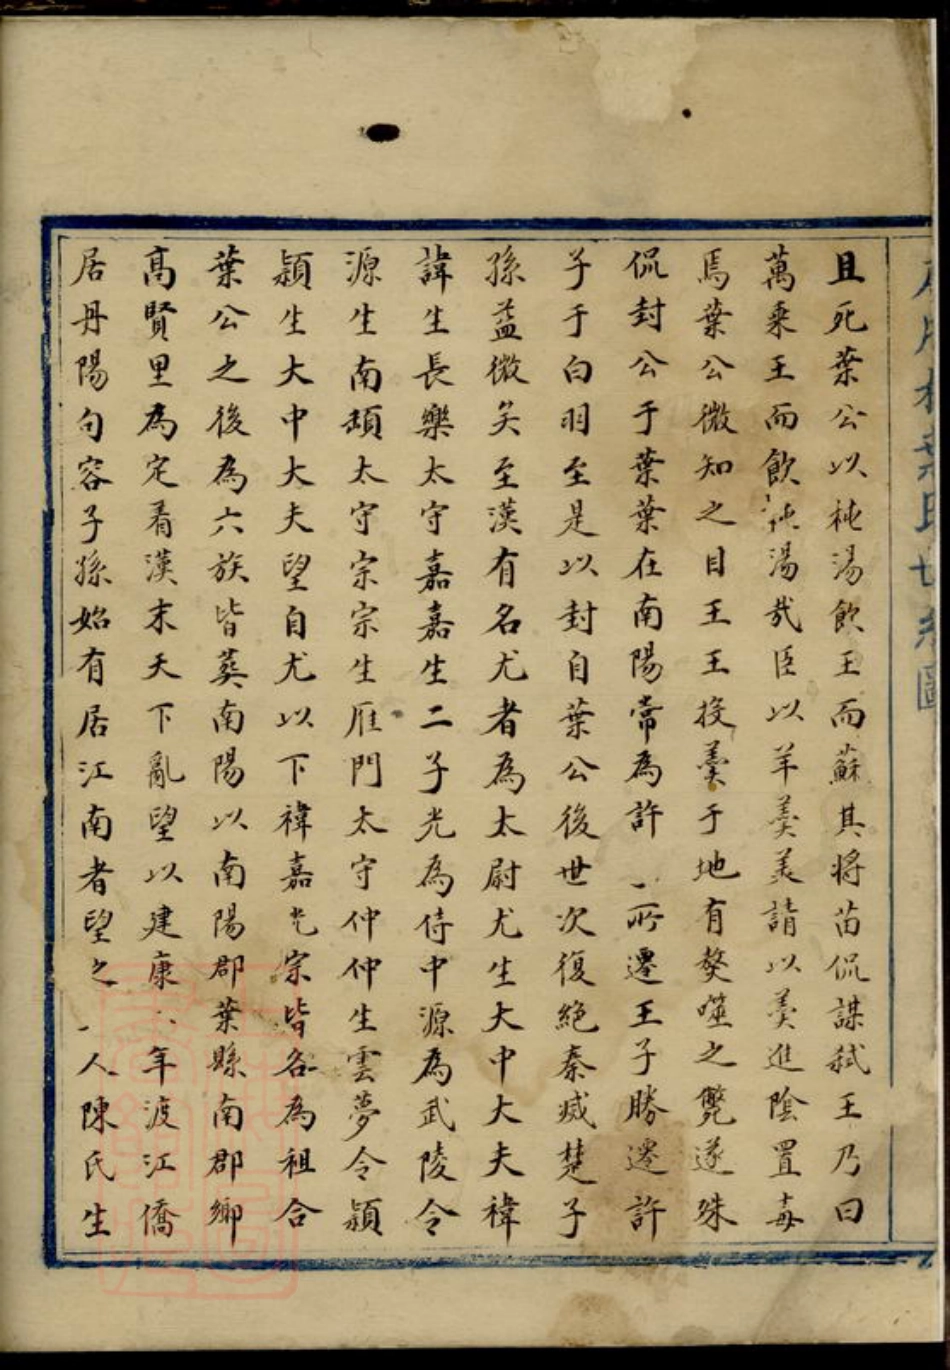 葉氏世系圖
且死葉公以純湯飲王而蘇其将苗侃謀弑王乃曰
萬乘王而飲湯哉臣以羊羹美請以羹進陰置毒
焉葉公微知之目王王投羹于地有獒噬之斃遂殊
侃封公于葉葉在南陽常為許所遷王子勝遷許
子于白羽至是以封自葉公後世次復絶秦滅楚子
孫益微矣至漢有名尤者為太尉尤生大中大夫禕
諱生長樂太守嘉嘉生二子光為侍中源為武陵令
源生南頓太守宗宗生雁門太守仲仲生雲夢令頴
頴生大中大夫望自尤以下禕嘉光宗皆各為祖合
葉公之後為六族皆葬南陽以南陽郡葉縣南郡鄉
高賢里為定着漢末天下亂望以建康年渡江僑
居丹陽句容子孫始有居江南者望之人陳氏生